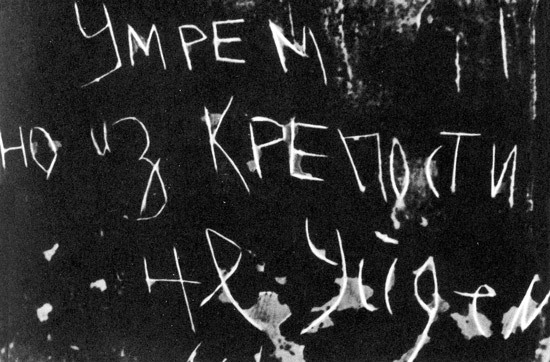 УМРЕМ
НО ИЗ КРЕПОСТИ
не уйдем